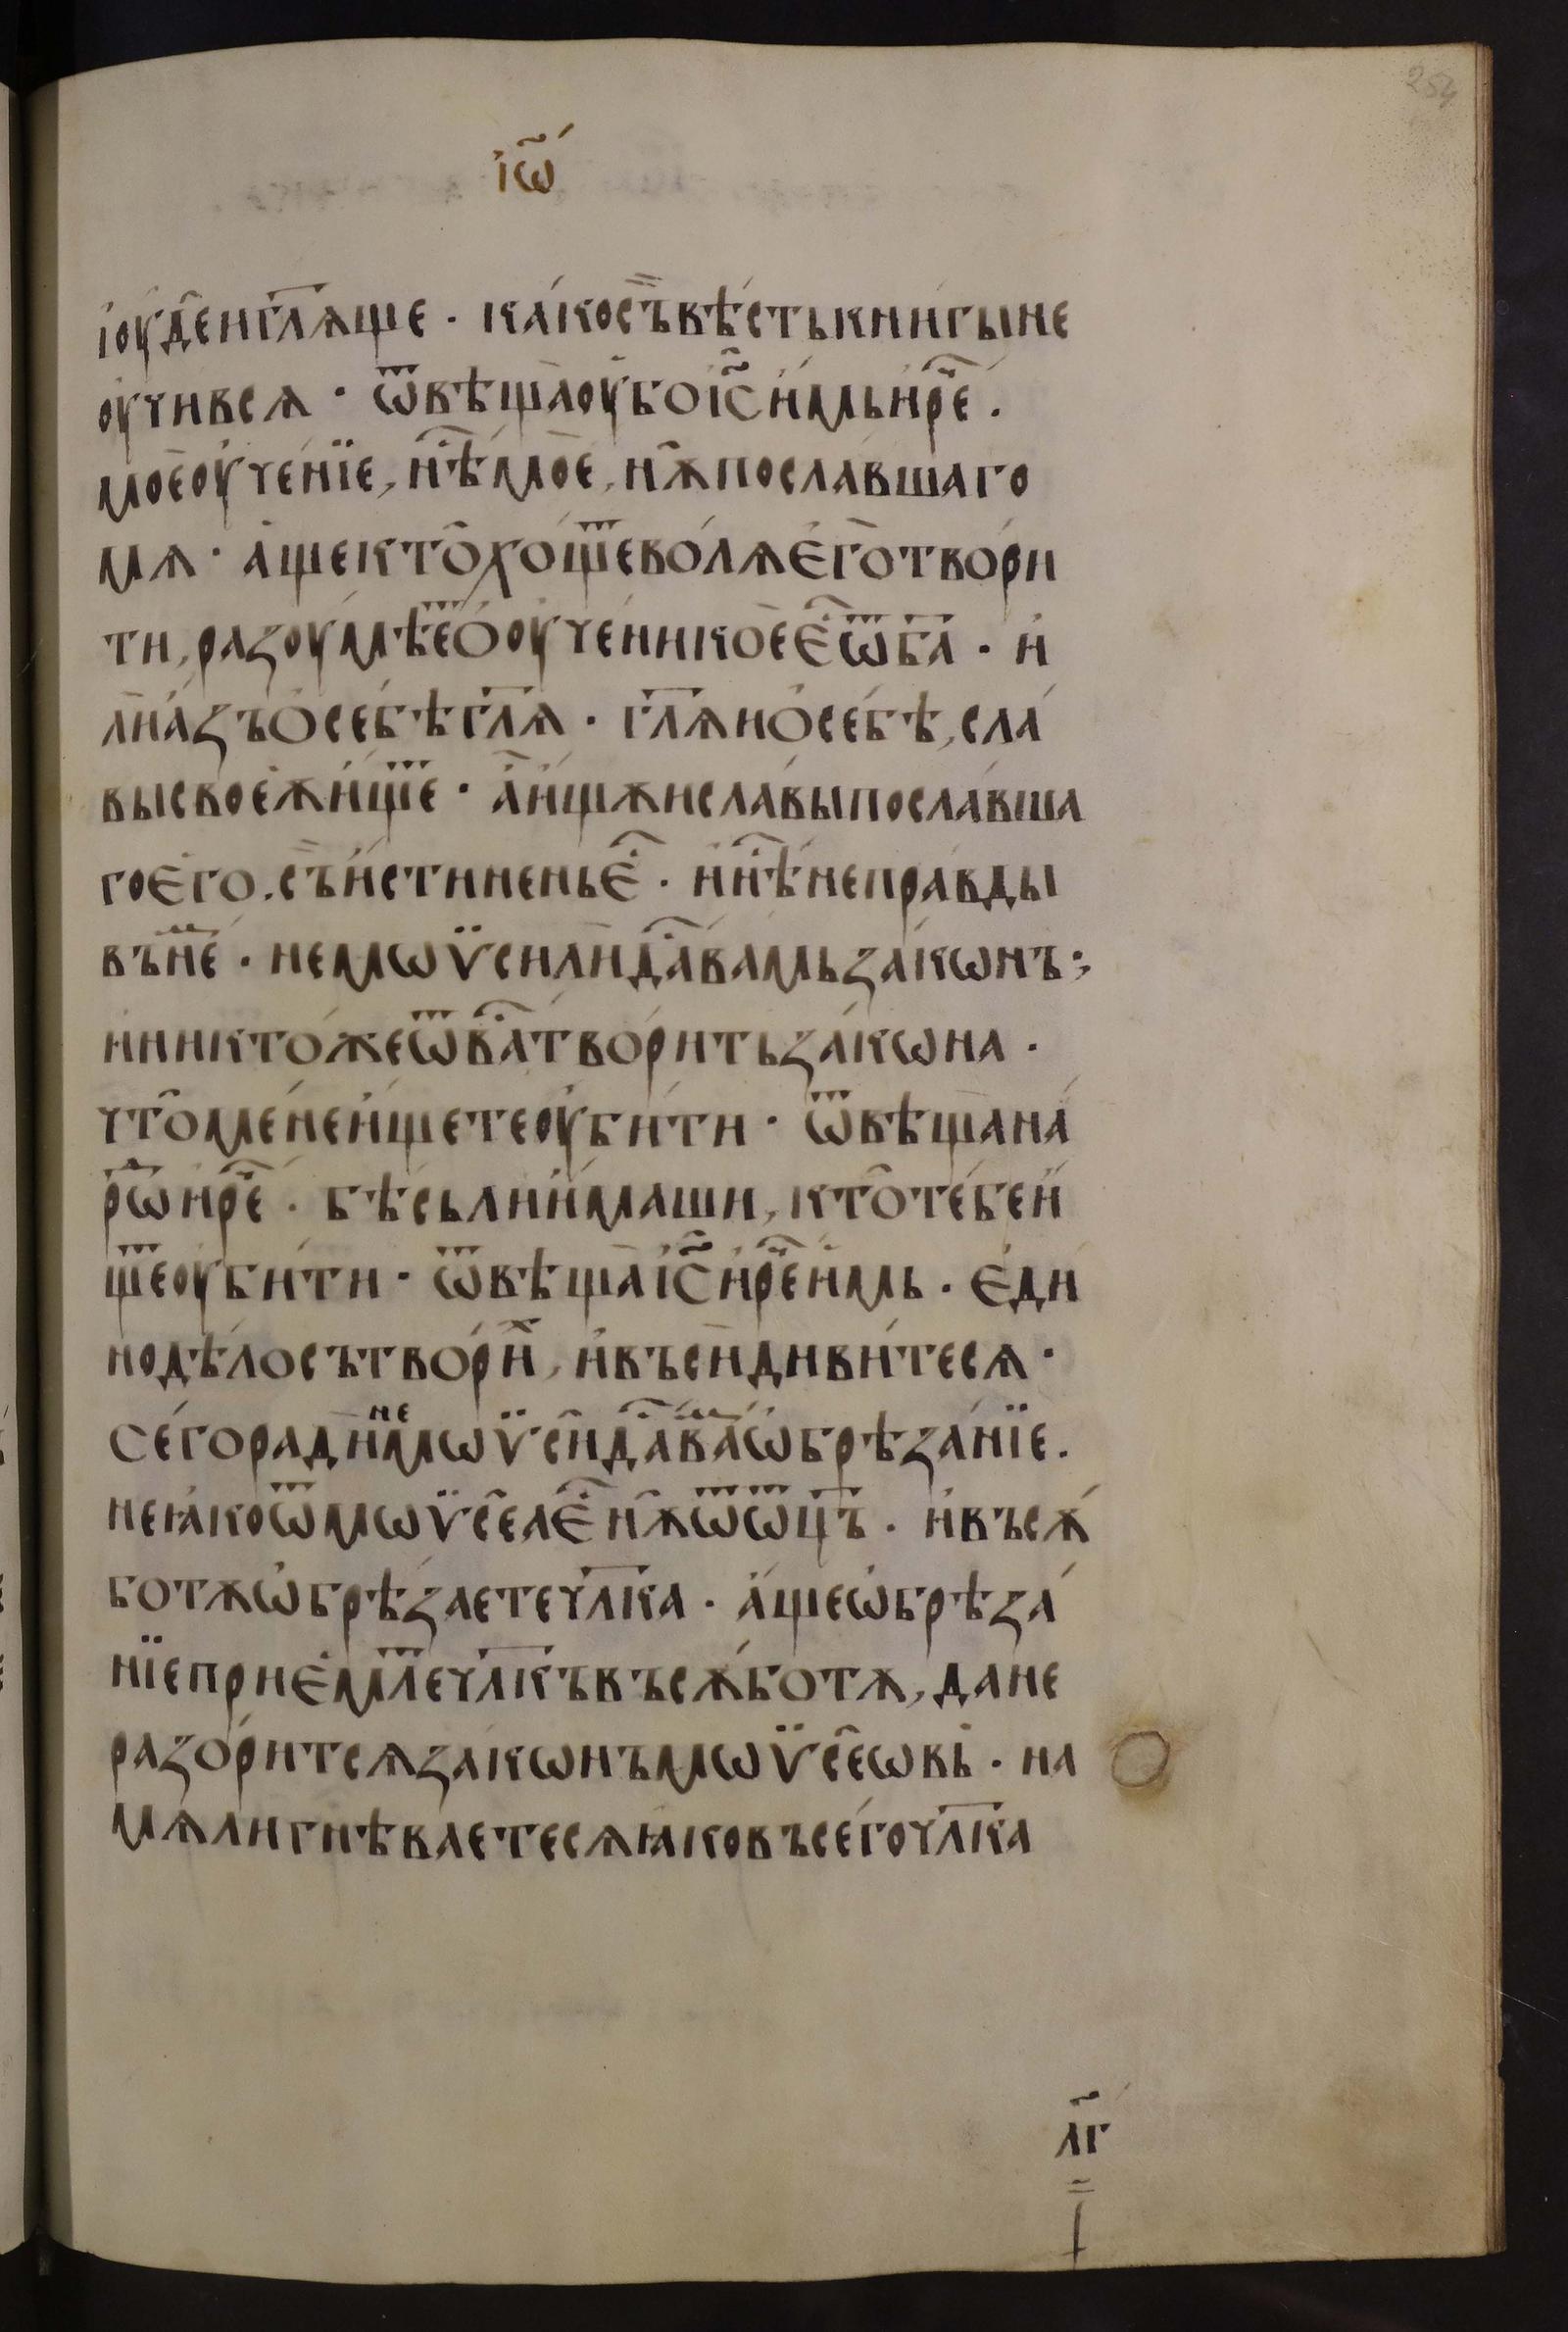 254
іѡ҃
іоуде́и гл҃ѧще · ка́ко съ вѣ́сть кни́гы не
оучивсѧ · ѿвѣща оубо іс҃ и́мь и рⷱ҇е ·
мое оуче́нїе, нⷭ҇ѣ мое, нѫ посла́вшаго
мѧ · а́ще кто хо́щеⷮ во́лѧ его твори
ти, разоумѣеⷮ о оуче́ни кое еⷭ҇ ѿ ба҃ · и
ли а́зъ о себѣ гл҃ѧ · гл҃ѧи о себѣ, сла́
вы своеѫ и́щеⷮ · а́ и́щѫи сла́вы посла́вша
го его. съ и́стиненъ еⷭ҇ · и нⷭ҇ѣ непра́вды
въ неⷨ · не мѡѵ̈си ли дⷭ҇а ва́мь за́кѡнъ ;
и никто́же ѿ ваⷭ҇ твори́ть за́кѡна ·
что ме́не и́щете оуби́ти · ѿвѣща на
рѡⷣ и рⷱ҇е · бѣ́сь ли и́маши, кто те́бе и́
щеⷮ оуби́ти · ѿвѣща іс҃ и рⷱ҇е и́мь · еди́
но дѣ́ло сътвори́ⷯ, и въси диви́тесѧ ·
Се́го ради не мѡѵ̈си дⷭ҇а ваⷨ ѡбрѣза́нїе ·
не ꙗко ѿ мѡѵ̈сеа еⷭ҇ нѫ ѿ ѿц҃ъ · и въ сѫ́
ботѫ ѡбрѣ́заете чл҃ка · а́ще ѡбрѣза́
нїе приемлеⷮ чл҃къ въ сѫ́ботѫ, да не
разори́тсѧ за́кѡнъ мѡѵ̈сеѡвь · на
мѧ ли гнѣ́ваетесѧ ꙗко въсе́го чл҃ка
лг҃